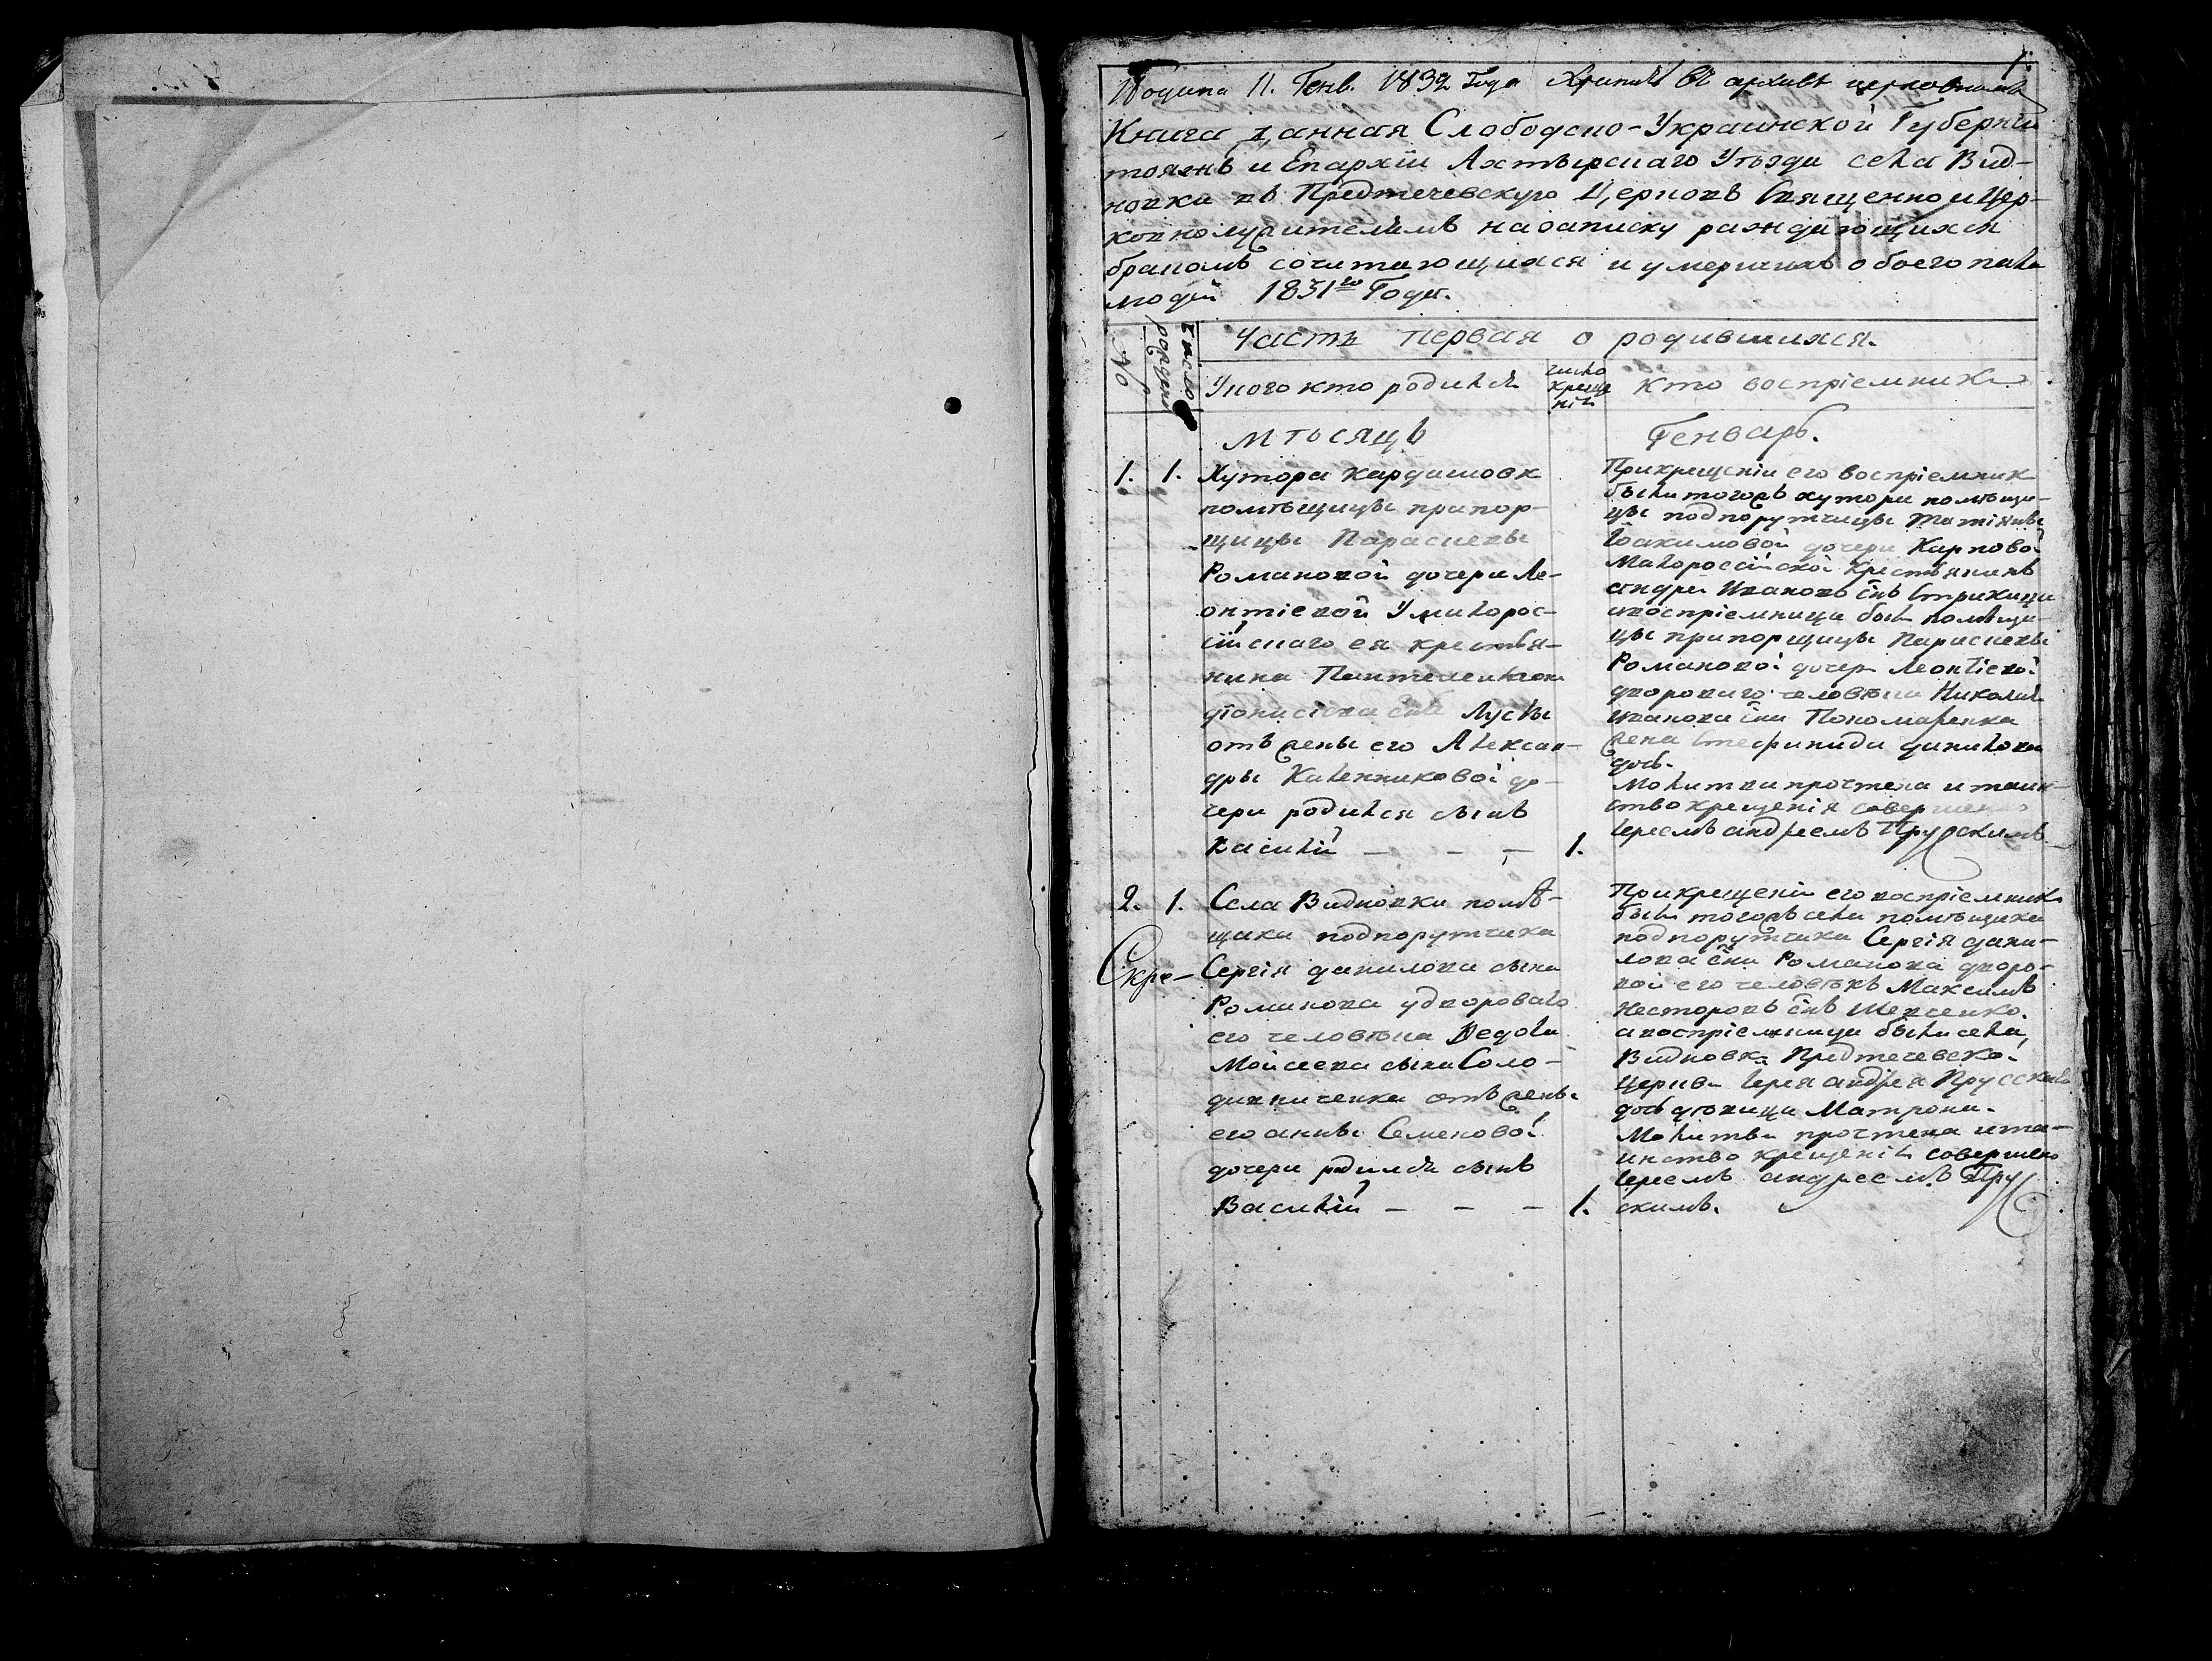 1.
11. Генв. 1832 года Хранить въ архивѣ церковномъ
Книга данная Слободско-Украинской Губерніи
тояжъ и Епархіи Ахтырскаго Уѣзда села Вид-
новки въ Предтечевскую Церковь Священно и Цер-
ковнослужителямъ на записку раждающихся
бракомъ сочитающихся и умершихъ обоего пола
людей 1831го Года.
№
число рожденія
Часть первая о родившихся.
У кого кто родился
число креще нія
кто воспріемники
Мѣсяцъ
Генварь.
1. 1. Хутора Кардашовк
помѣщицы прапор-
щицы Параскевы
Романовой дочери Ле-
онтіевой У малорос-
ійскаго ея крестья-
нина Пантелеимона
Діонисіева сна Лусты
отъ жены его Алексан-
дры Калениковой до-
чери родился сынъ
Василій — — — 1.
При крещеніи его воспріемник
были тогожъ хутора помѣщи-
цы подпорутчицы Татіяны
Іоакимовой дочери Карповой
Малороссійской Крестьянинъ
андрей Ивановъ снъ
а воспріемница была помѣщи-
цы прапорщицы Параскевы
Романовой дочер Леонтіево
двороваго человѣка Николая
иванова сна Пономаренка
жена Стефанида данилова
дочь.
Молитва прочтена и таин-
ство крещенія совершено
Іереемъ андреемъ Прусскимъ
2. 1. Села Видновки помѣ-
щика подпорутчика
Скре-
Сергія данилова сына
Романова у двороваго
его человѣка Ѳедота
Мойсеева сына Соло-
отъ жены
его анны Семеновой
дочери родился сынъ
Василій — — — 1.
При крещеніи его воспріемник
были тогожъ села помѣщика
подпорутчика Сергія дани-
лова сна Романова дворо-
вой его человѣкъ Максимъ
Несторовъ снъ Шевченко.
а воспріемница была села
Видновк Предтечевско
церкви Іерея андрея Прусскаго
дочь дѣвица Матрона.
Молитва прочтена и та-
инство крещенія совершено
Іереемъ андреемъ Прус
скимъ.